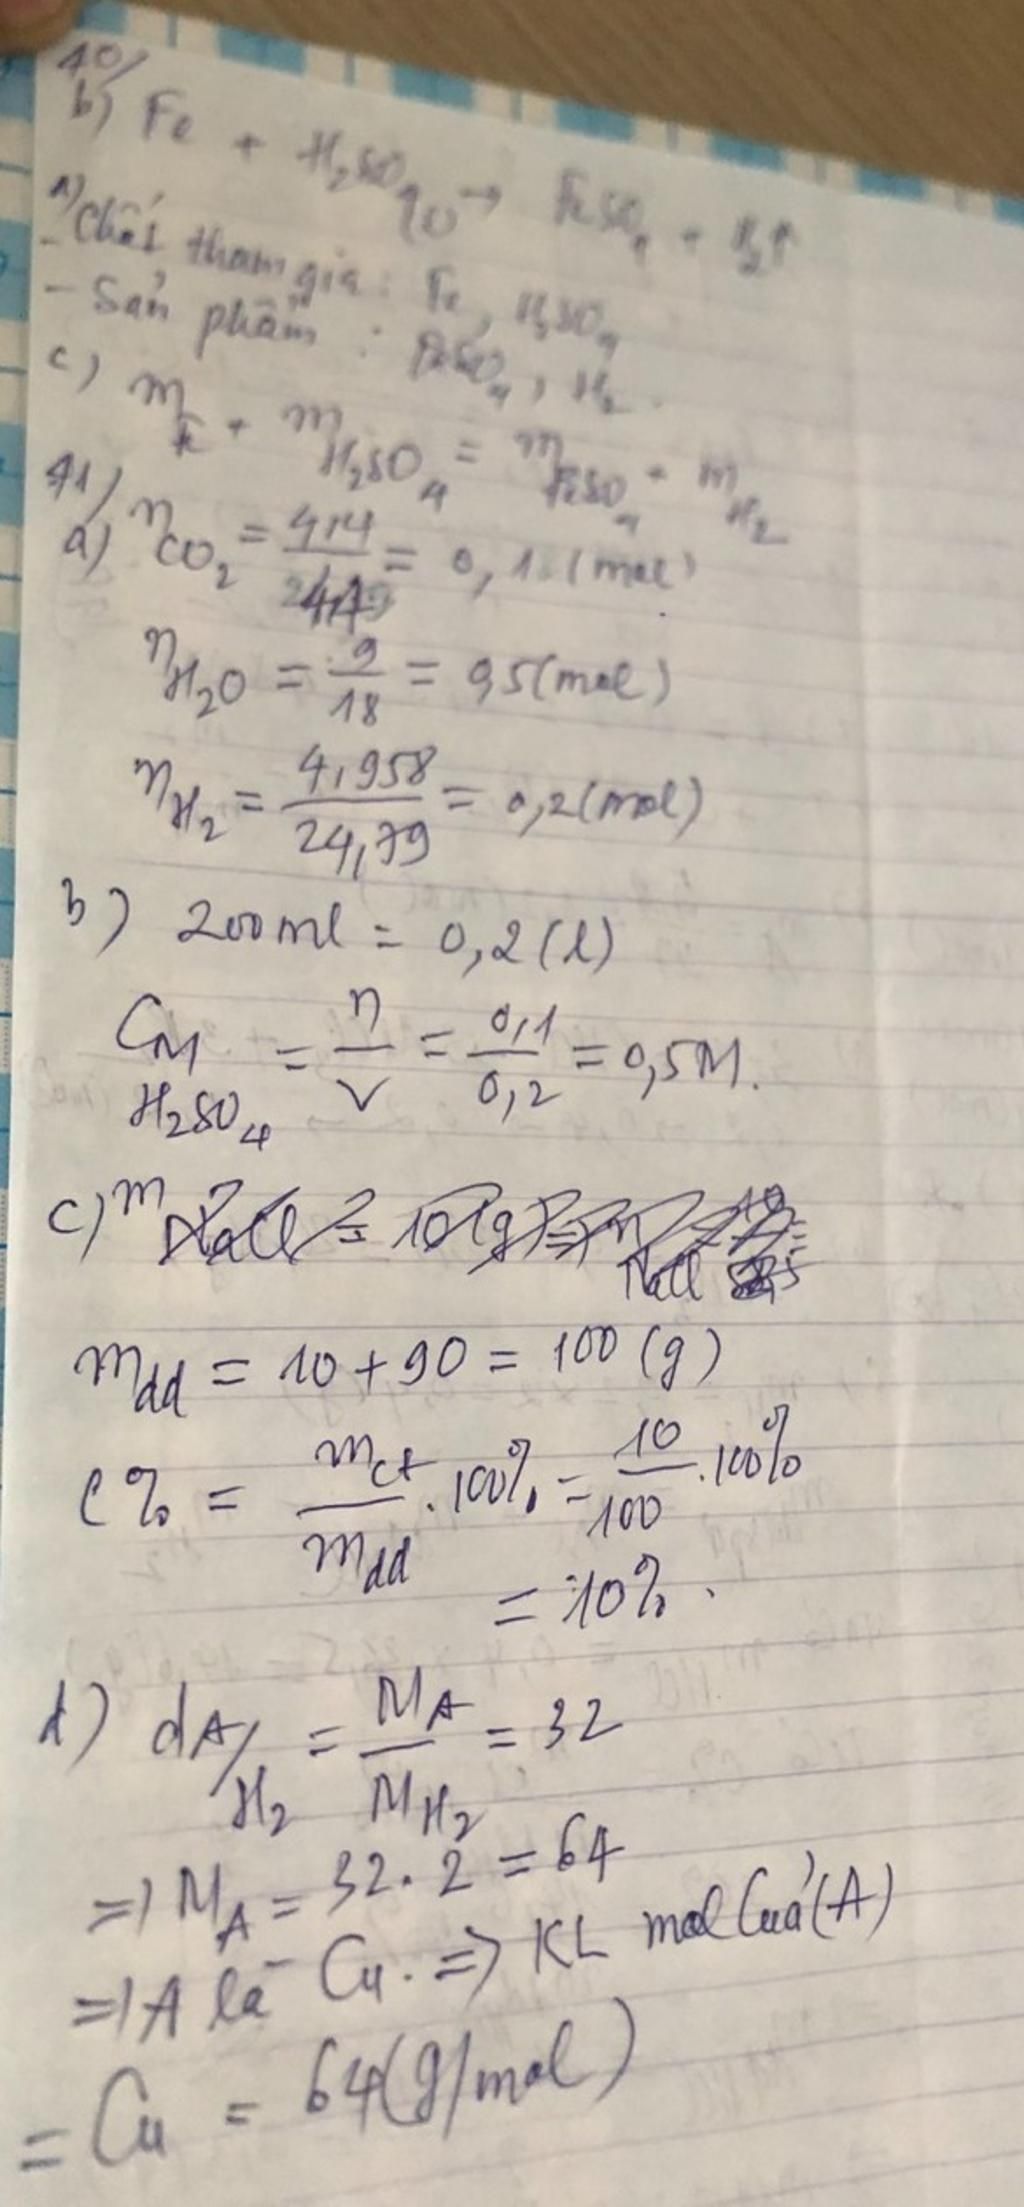 40/
b) Fe + H₂SO₄ → FeSO₄ + H₂↑
a) Chất tham gia: Fe, H₂SO₄
- Sản phẩm : FeSO₄, H₂.
c) m Fe + m H₂SO₄ = m FeSO₄ + m H₂
41/
a) n CO₂ = 4,4 / 44 = 0,1 (mol)
n H₂O = 9 / 18 = 0,5 (mol)
n H₂ = 4,958 / 24,79 = 0,2 (mol)
b) 200 ml = 0,2 (l)
C M H₂SO₄ = n / V = 0,1 / 0,2 = 0,5M.
c) m
m dd = 10 + 90 = 100 (g)
C% = m ct / m dd . 100% = 10 / 100 . 100%
= 10% .
d) d A/H₂ = M A / M H₂ = 32
=> M A = 32 . 2 = 64
=> A là Cu. => KL mol Của (A)
= Cu = 64 (g/mol)